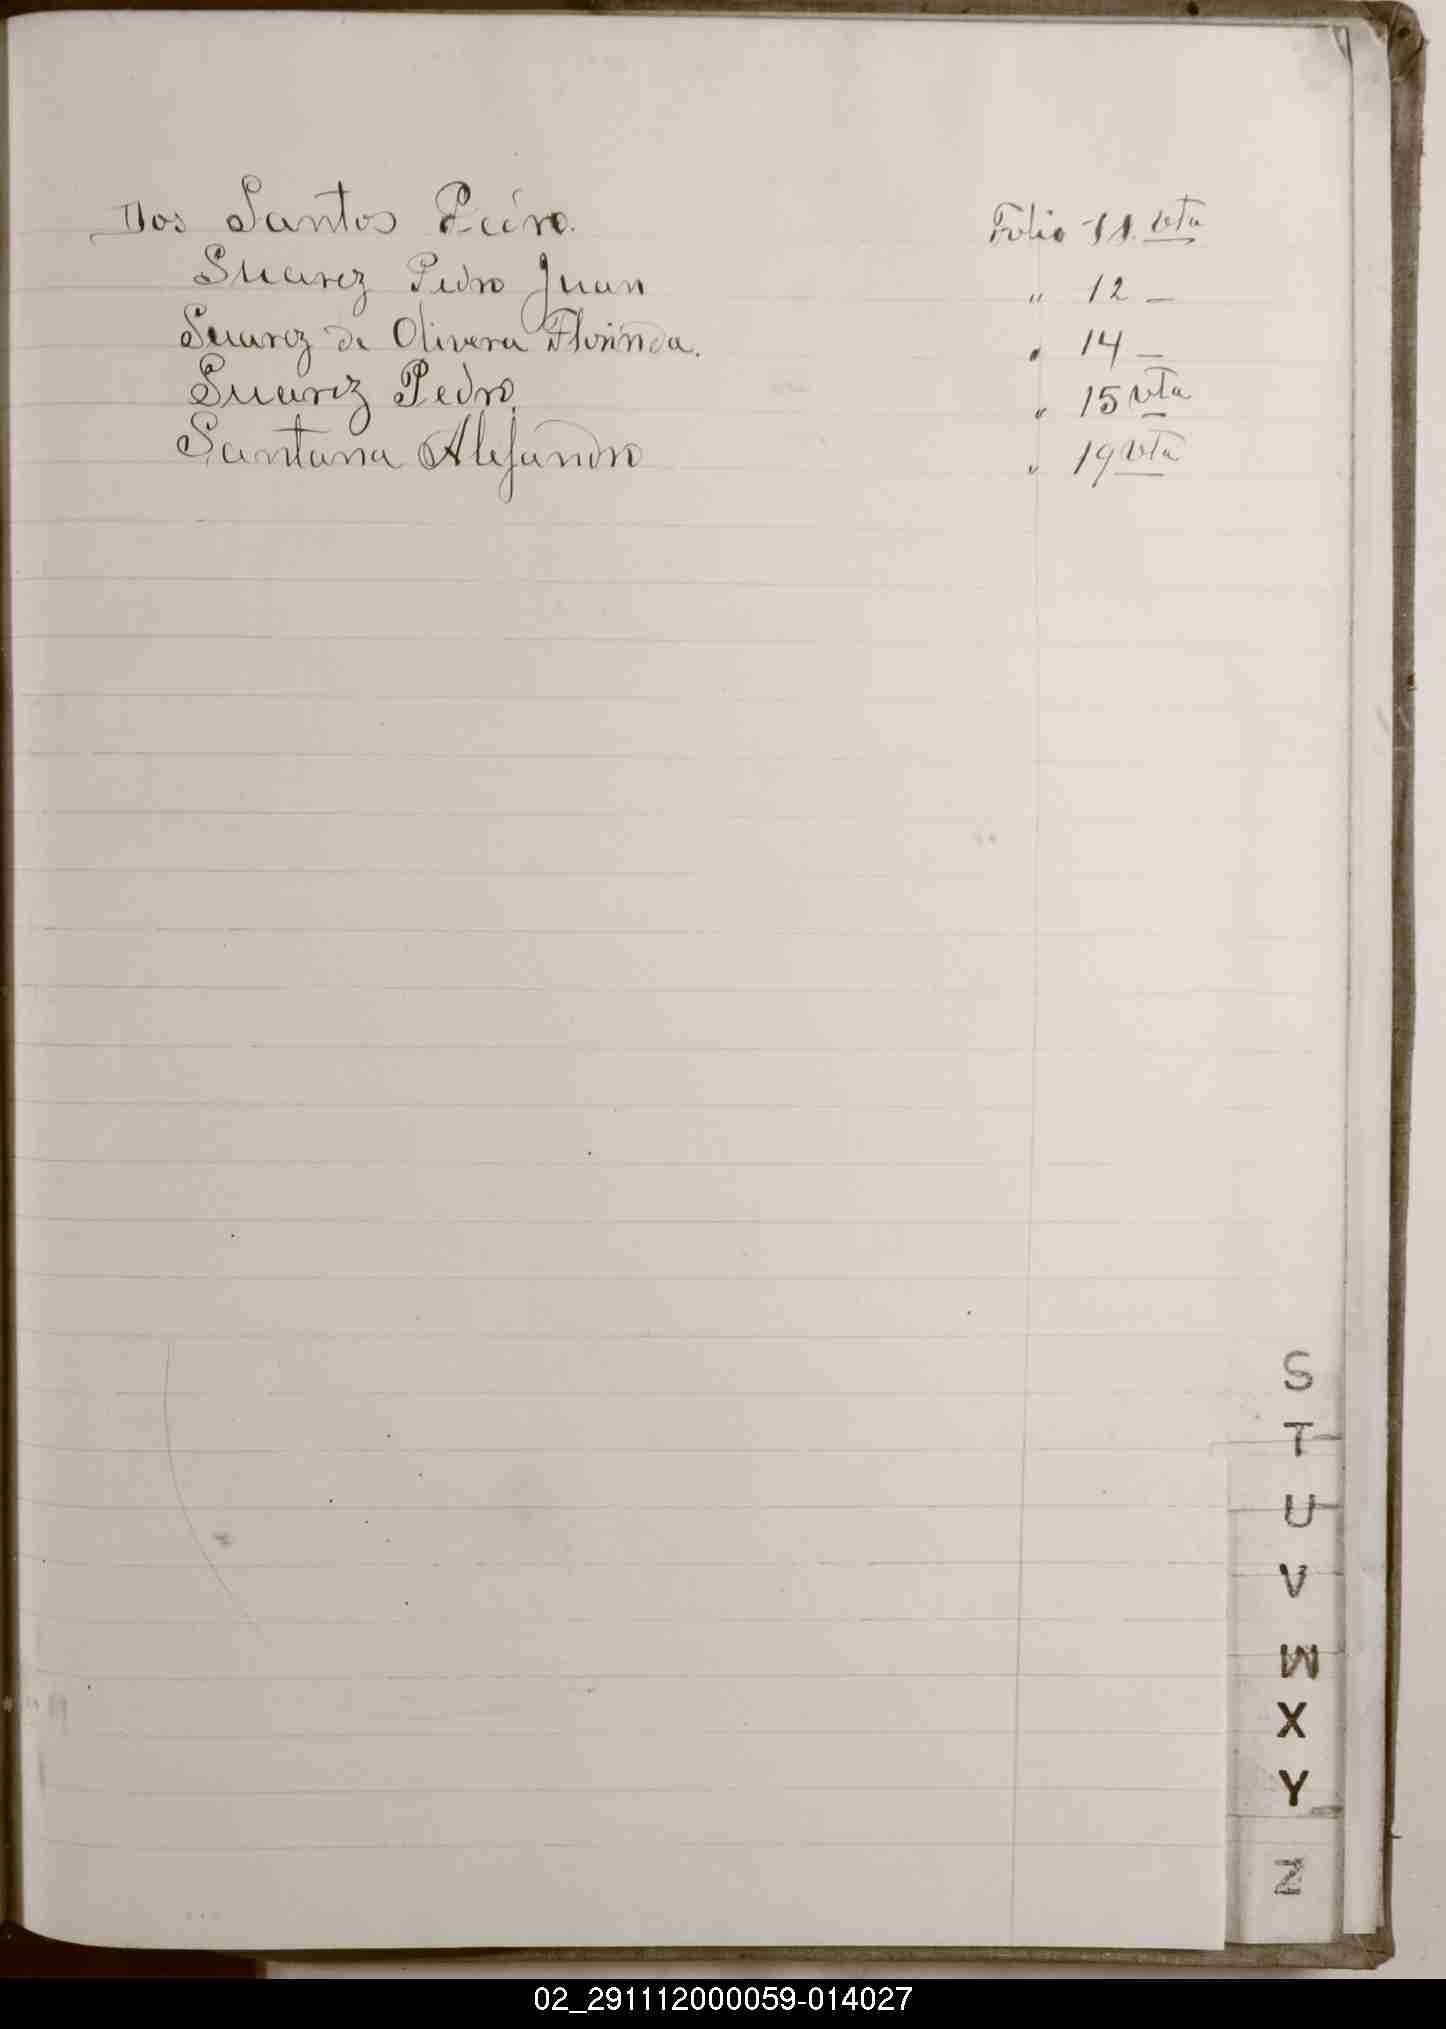 Dos Santos Pedro. Folio 11. vta
Suarez Pedro Juan " 12 -
Suarez de Olivera Florinda. " 14 -
Suarez Pedro " 15 vta
Santana Alejandro " 19 vta
S
T
U
V
W
X
Y
Z
02_291112000059-014027